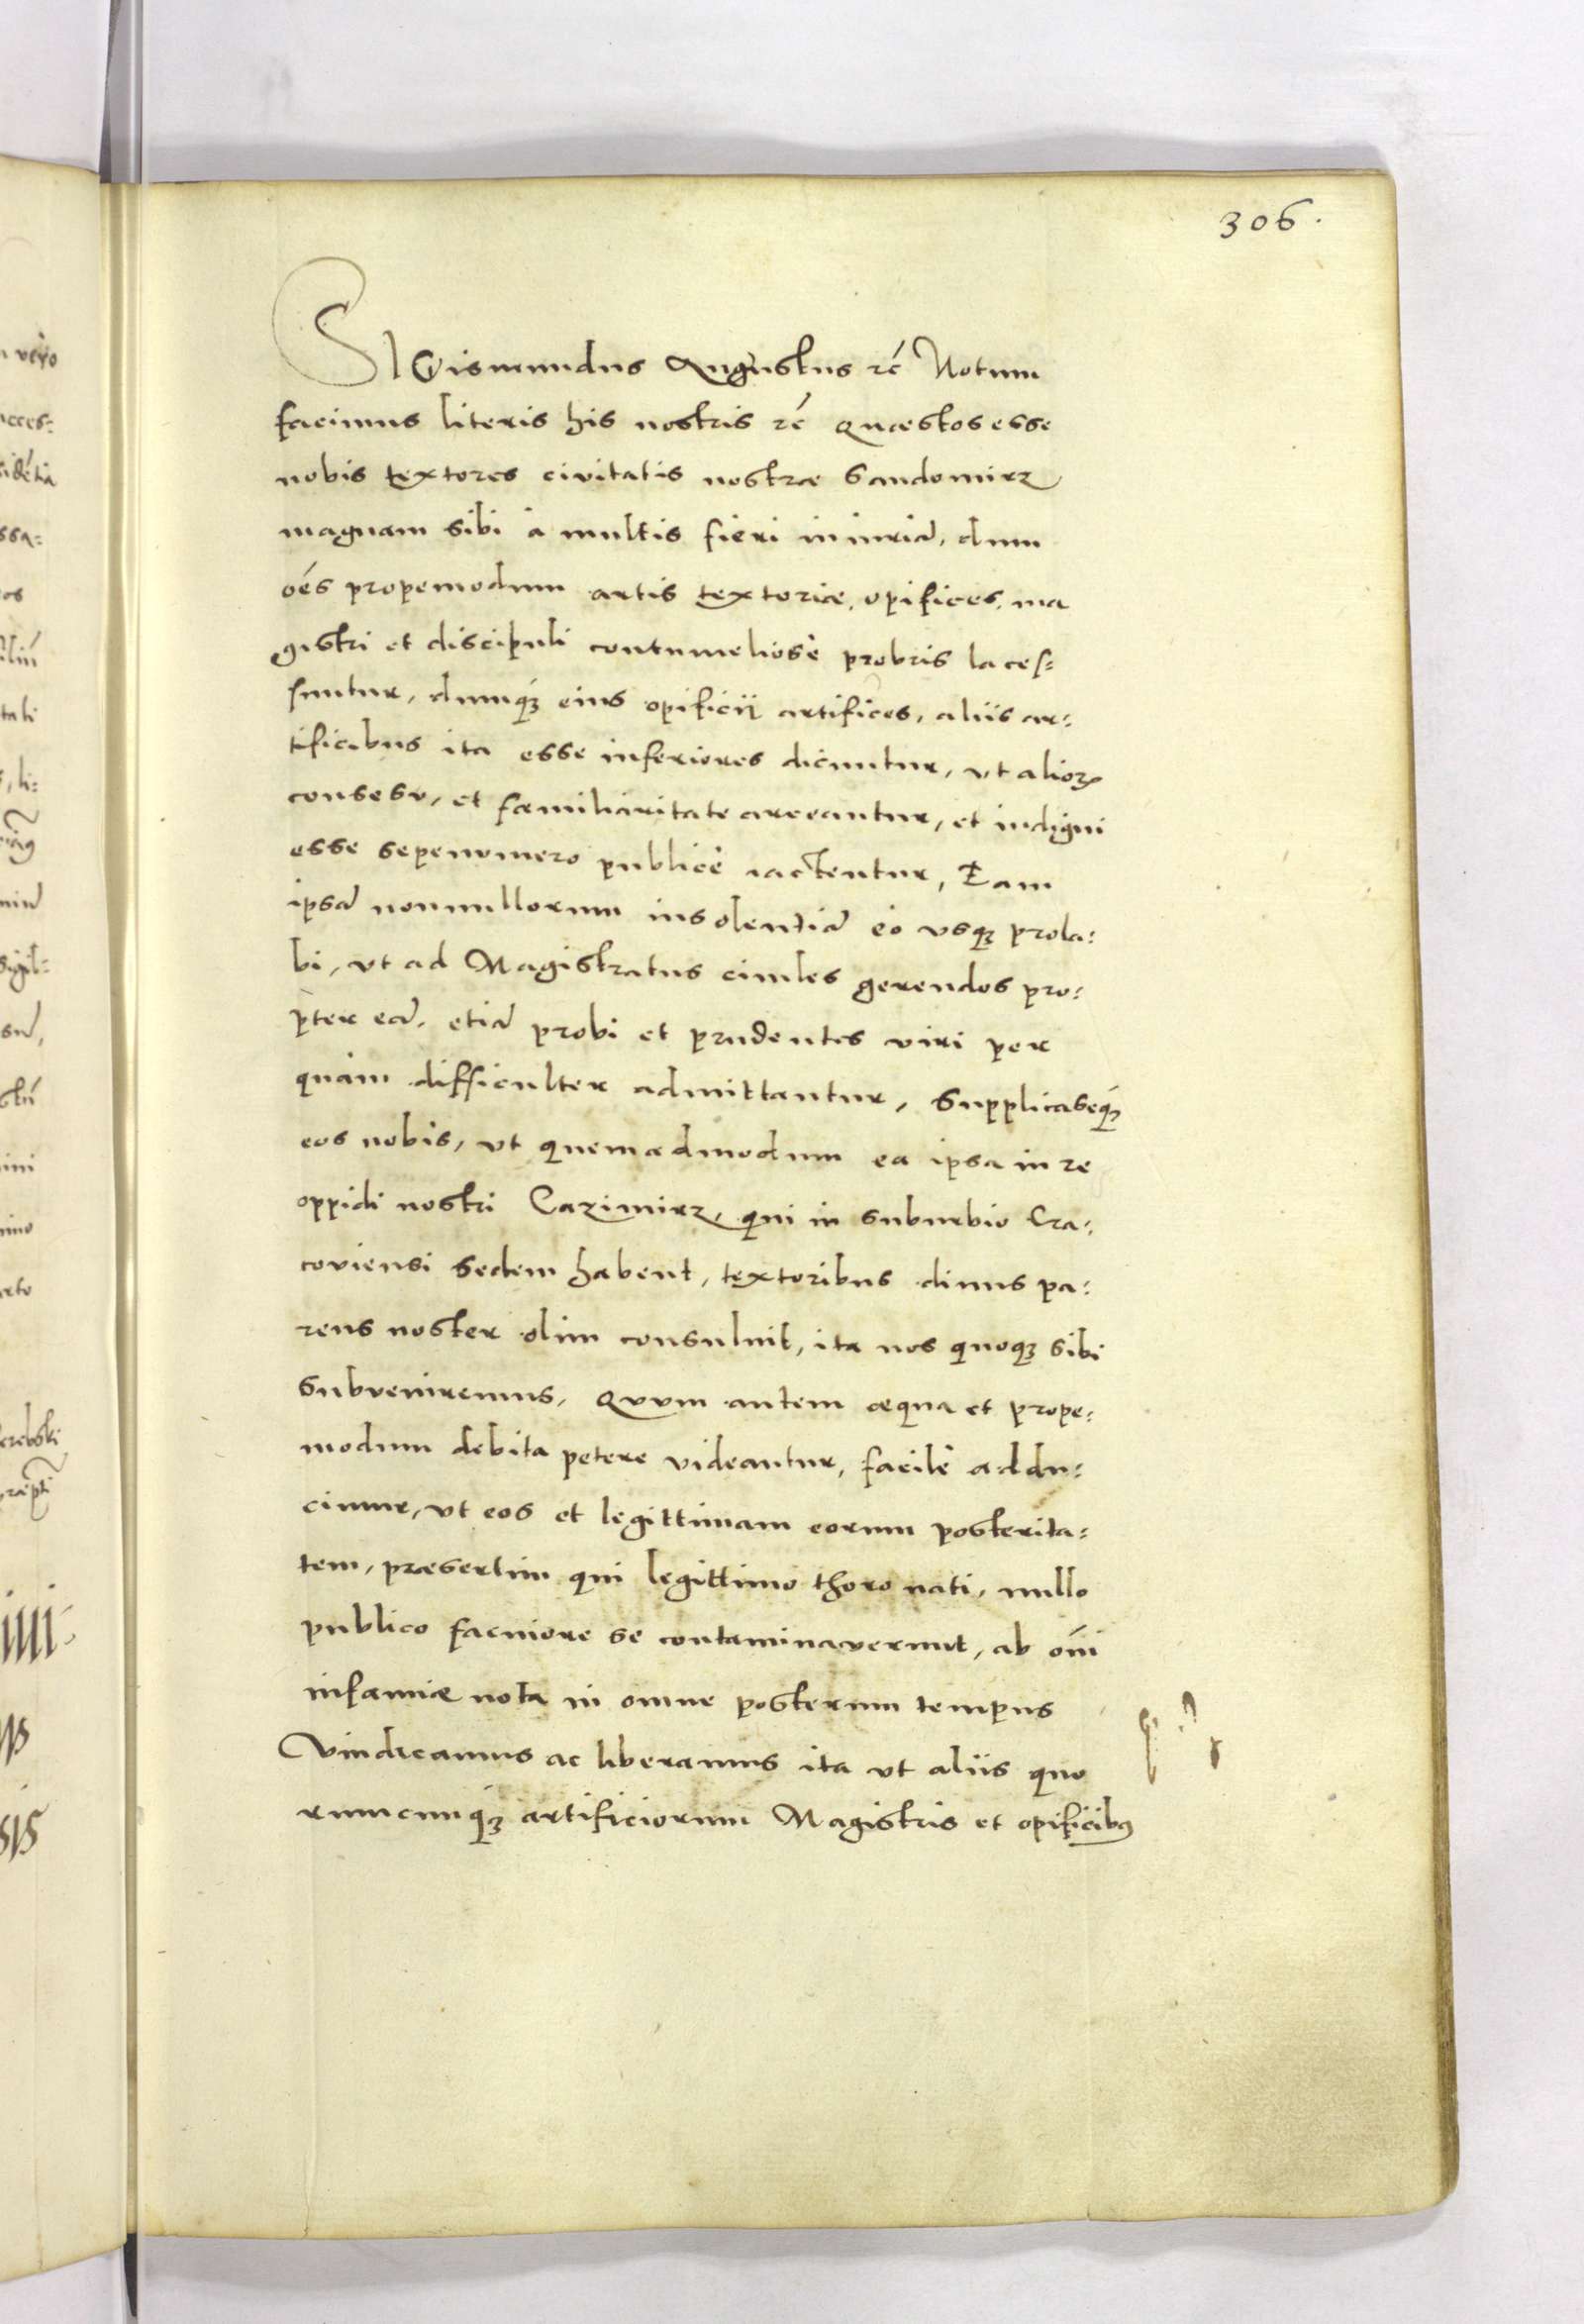 306.
SIGismundus Augustus rc̄ Notum
facimus literis his nostris rc̄ Quaestos esse
nobis textores civitatis nostrae Sandomirz
magnam sibi à multis fieri iniuriā, dum
oēs propemodum artis textoriae, opifices, ma
gistri et discipuli contumeliosè probris laces=
suntur, dumqȝ eius opificii artifices, aliis ar=
tificibus ita esse inferiores dicuntur, vt alioꝝ
consesu, et familiaritate arceantur, et indigni
esse sepenumero publicè iactentur, Eam
ipsā nonnullorum insolentiā eò vsqȝ prola=
bi, vt ad Magistratus ciuiles gerendos pro=
pter eā, etiā probi et prudentes viri per
quàm difficulter admittantur, Supplicaseqȝ
eos nobis, vt quemadmodum ea ipsa in re
oppidi nostri Cazimirz, qui in suburbio Cra=
coviensi sedem habent, textoribus diuus pa=
rens noster olim consuluit, ita nos quoqȝ sibi
subveniremus, Quum autem aequa et prope=
modum debita petere videantur, facilè addu=
cimur, vt eos et legittimam eorum posterita=
tem, praesertim qui legittimo thoro nati, nullo
publico facinore se contaminaverunt, ab om̄i
infamiae nota in omne posterum tempus
Vindicamus ac liberamus ita vt aliis quo
rumcunqȝ artificiorum Magistris et opificibꝰ